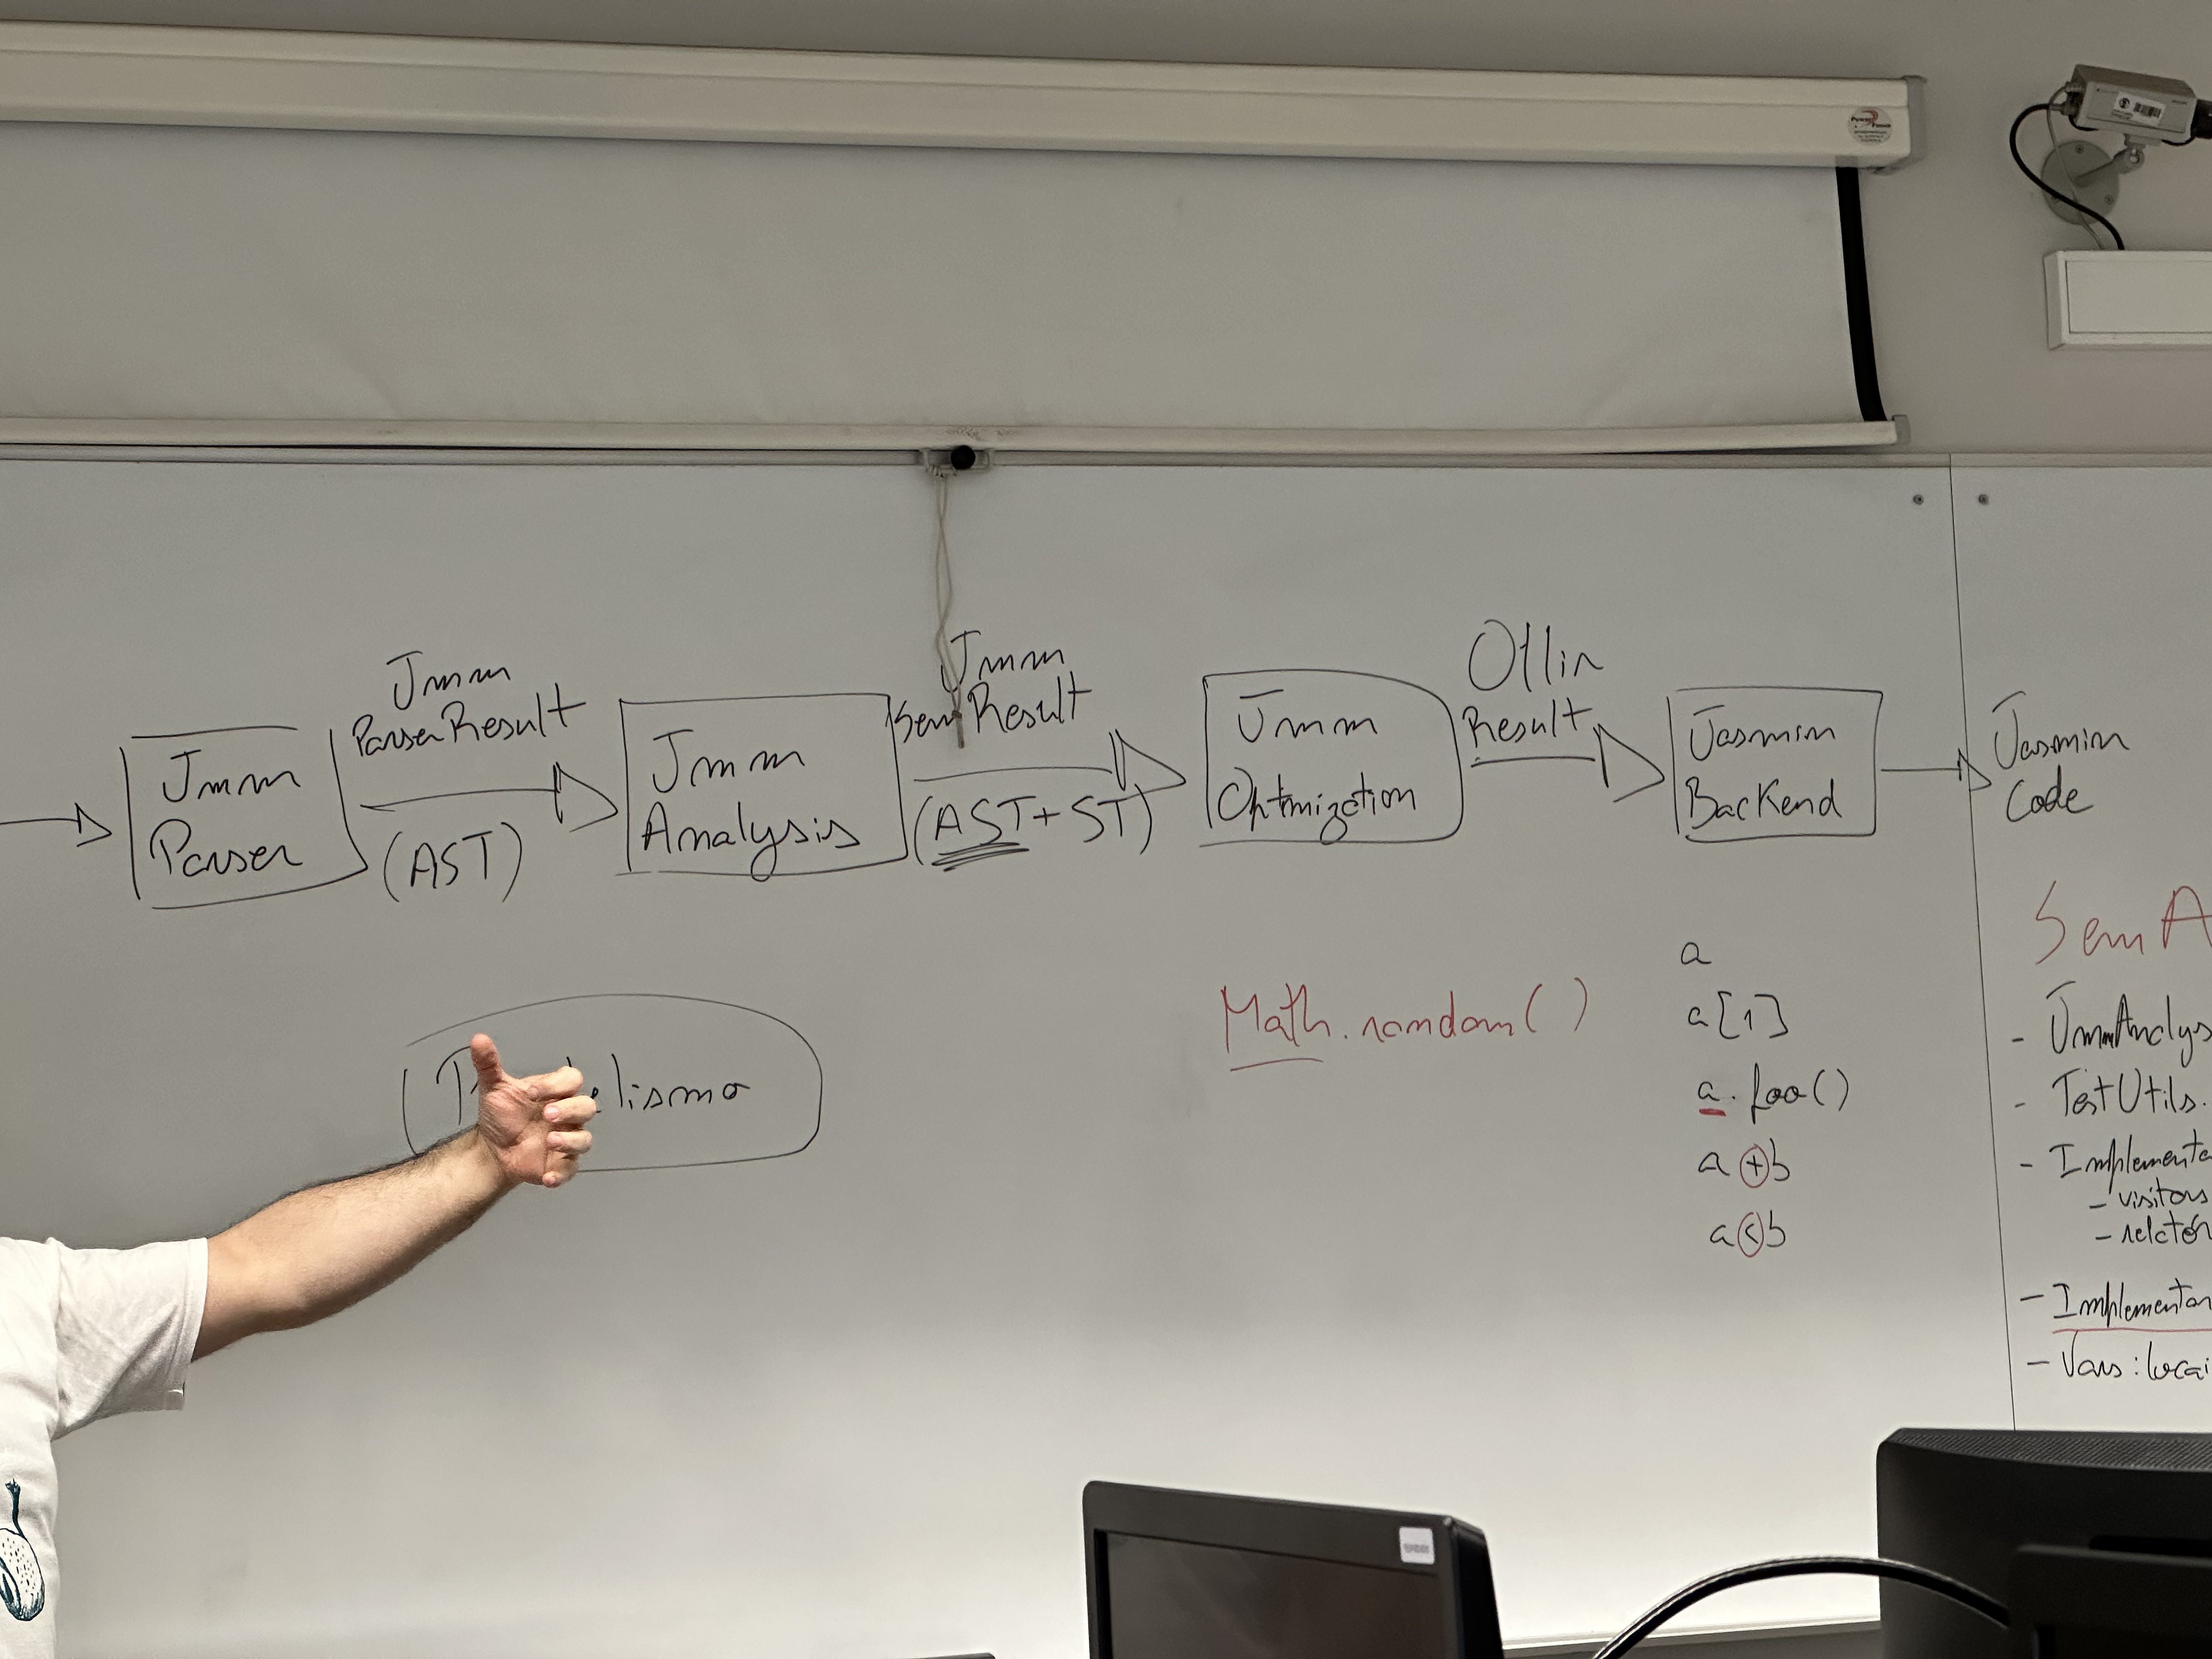 Jmm
Parser
Jmm
ParserResult
(AST)
Jmm
Analysis
Jmm
Sem Result
(AST + ST)
Jmm
Optimization
Ollir
Result
Jasmin
BackEnd
Jasmin
Code
lismo
Math.random()
a
a[1]
a.foo()
a + b
a < b
Sem A
- JmmAnalys
- TestUtils.
- Implementa
- visitors
- relatór
- Implementar
- Vars: locai